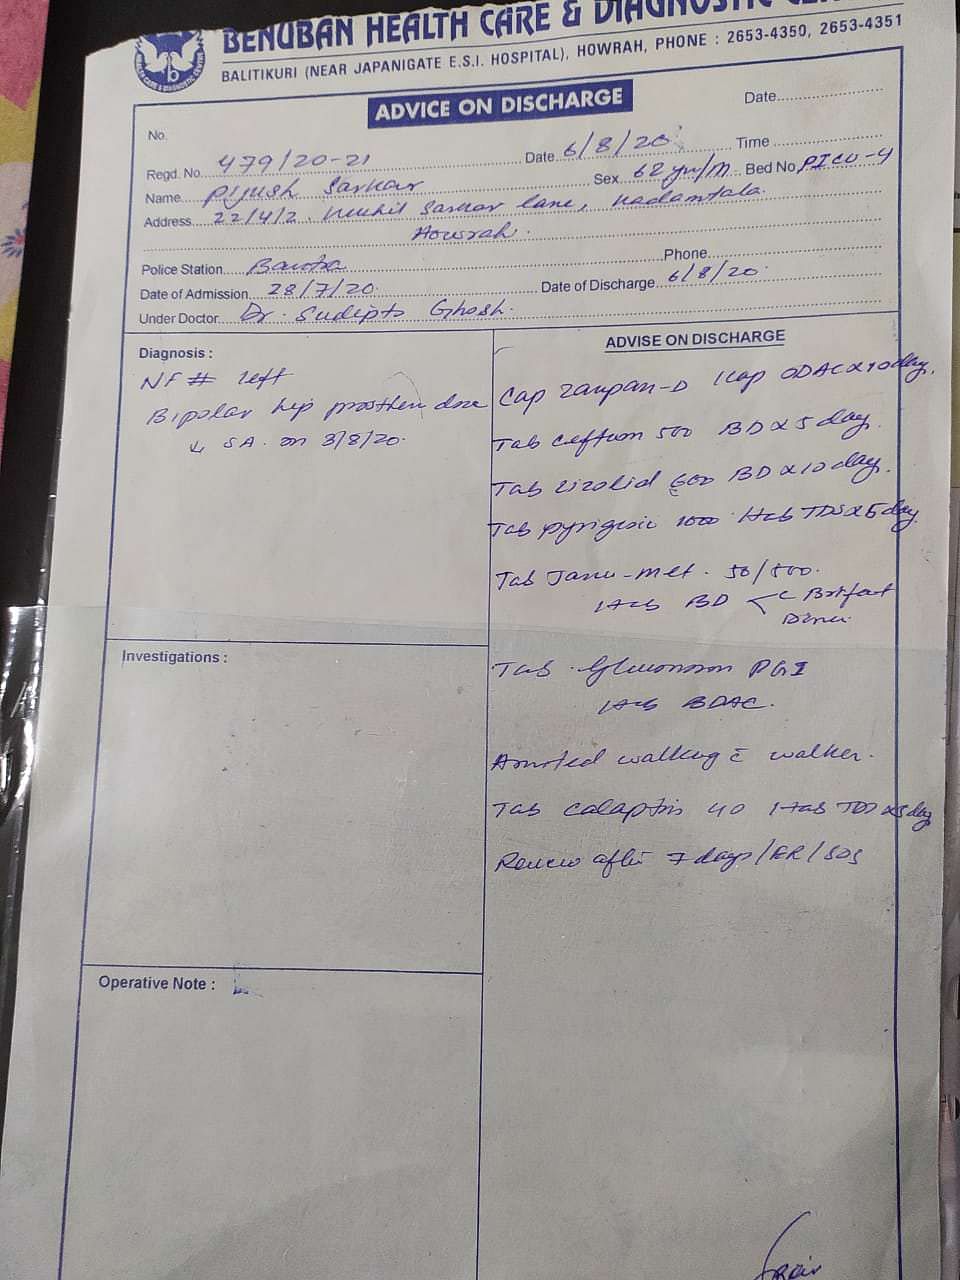 BENUBAN HEALTH CARE & DIAGNOSTIC
BALITIKURI (NEAR JAPANIGATE E.S.I. HOSPITAL), HOWRAH, PHONE : 2653-4350, 2653-4351
ADVICE ON DISCHARGE
Date
No.
Regd. No. 479/20-21 Date 6/8/20 Time
Name Pijush Sarkar Sex 62 yrs/M Bed No PICU-4
Address 22/4/2 Sarkar lane, Kadamtala
Howrah.
Police Station Bantra Phone
Date of Admission 28/7/20. Date of Discharge 6/8/20.
Under Doctor Dr. Sudipto Ghosh.
Diagnosis :
NF # left
Bipolar hip done
↓ SA on 3/8/20.
ADVISE ON DISCHARGE
Cap -D 1cap ODAC x 10 day.
Tab Ceftum 500 BD x 5 day.
Tab Lizolid 600 BD x 10 day.
Tab Pyrigesic 1000 1tab TDS x 5 day.
Tab Janu-met. 50/500.
1tab BD < c Brkfast
Dinner.
Tab. PG1
1tab BDAC.
Assisted walking c̄ walker.
Tab Calaptin 40 1 tab TDS x 5 day
Review after 7 days/ER/SOS
Investigations :
Operative Note :